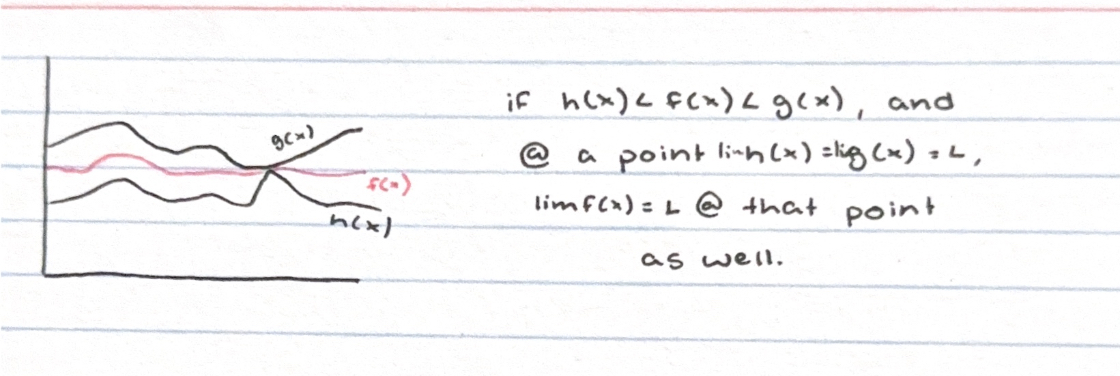 g(x)
f(x)
h(x)
if h(x) < f(x) < g(x), and
@ a point lim h(x) = lim g(x) = L,
lim f(x) = L @ that point
as well.